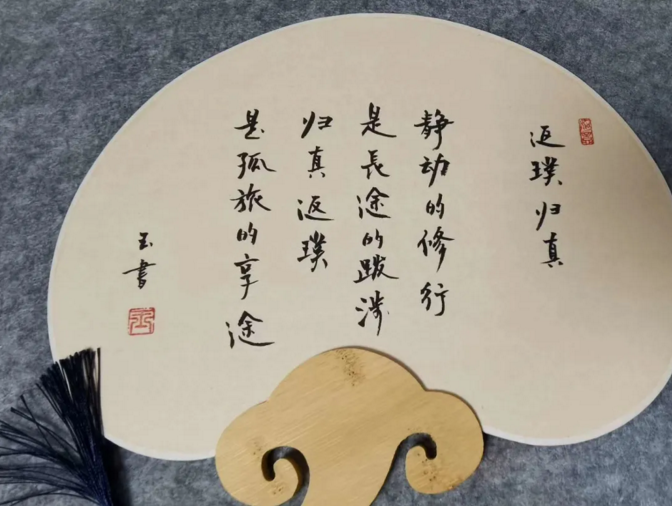 返璞归真
静动的修行
是長途的跋涉
归真返璞
是孤旅的享途
玉書